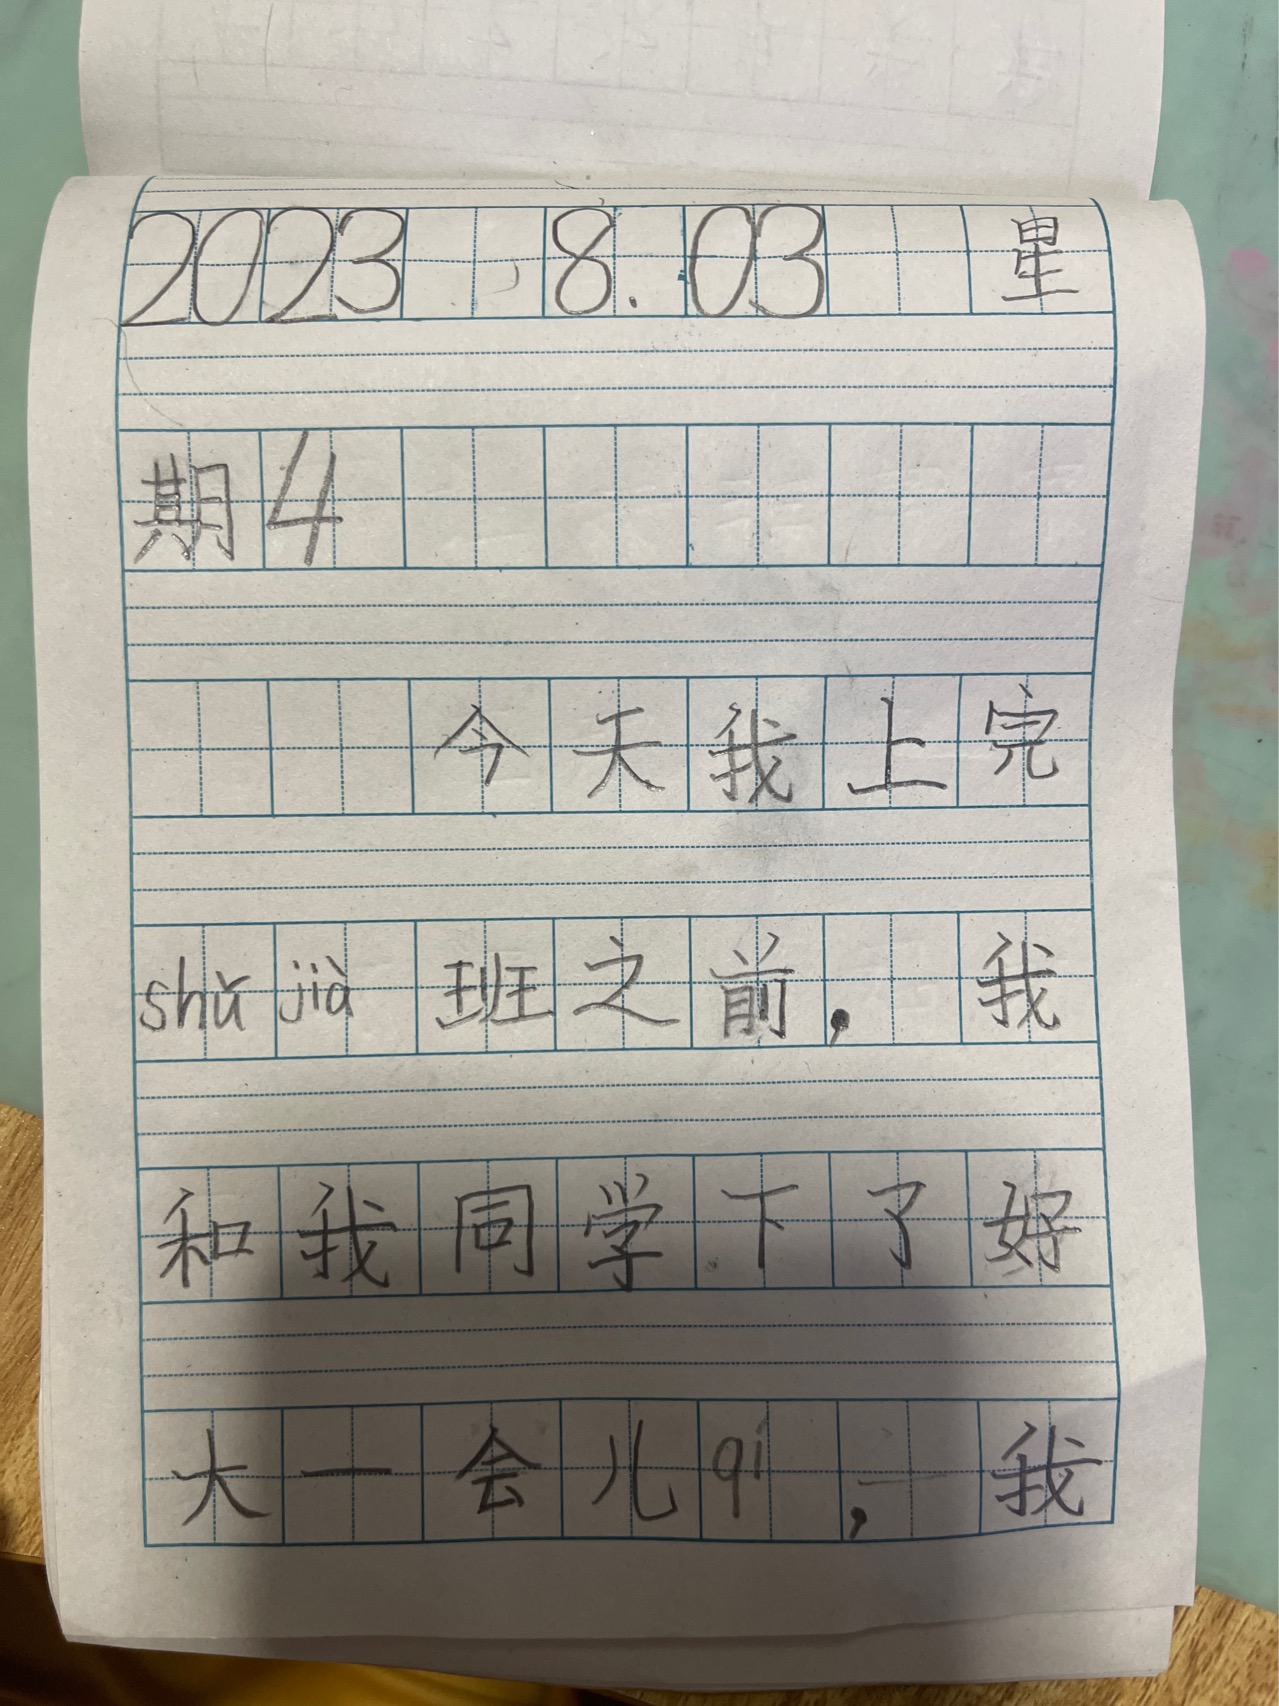 2023 8.03 星
期4
今天我上完
shǔ jià 班之前，我
和我同学下了好
大一会儿qi，我